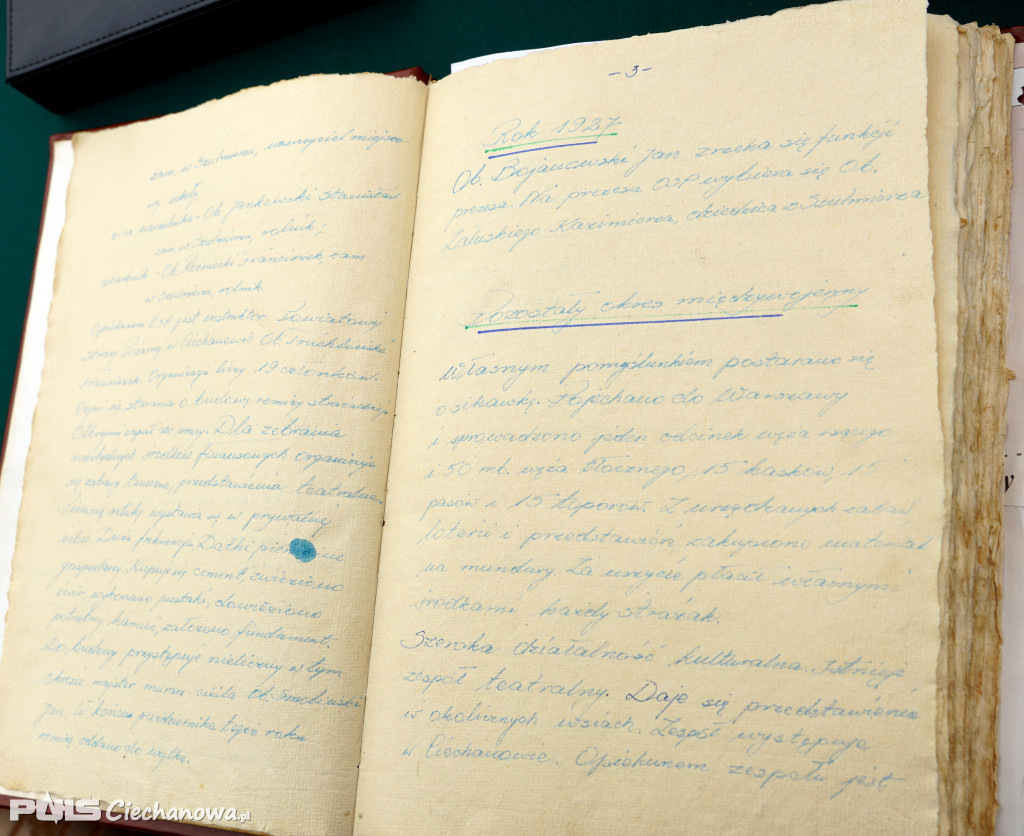 zam. w Szulmierzu, nauczyciel miejsco-
wej szkoły
z-ca naczelnika - Ob. Jankowski Stanisław
zam. w Szulmierzu, rolnik;
skarbnik - Ob. Franciszek, zam
w Szulmierzu, rolnik.
Opiekunem OSP jest instruktor Powiatowej
Straży Pożarnej w Ciechanowie Ob.
Franciszek. Organizacja liczy 19 członków.
Czyni się starania o budowę remizy strażackiej.
Olbrzymi zapał do pracy. Dla zebrania
niezbędnych środków finansowych organizuje
się zabawy taneczne, przedstawienia teatralne.
Pierwszą sztukę wystawia się w prywatnej
Duża frekwencja. Datki
gospodarzy. Kupujemy cement, zwieziono
żwir, wykonano pustaki, dowieziono
potrzebny kamień, założono fundament.
Do budowy przystępuje nieliczny w tym
okresie majster murarz-cieśla Ob. Smoliński
Jan. W końcu października tegoż roku
remizę oddano do użytku.
- 3 -
Rok 1927
Ob. Bojanowski Jan zrzeka się funkcji
prezesa. Na prezesa OSP wybiera się Ob.
Załuskiego Kazimierza, dziedzica z Szulmierza
Pozostały okres międzywojenny
Własnym pomyślunkiem postarano się
o sikawkę. Pojechano do Warszawy
i sprowadzono jeden odcinek węża ssącego
i 50 mb. węża tłocznego, 15 kasków, 15
pasów i 15 toporów. Z urządzanych zabaw,
loterii i przedstawień zakupiono materiał
na mundury. Za uszycie płacił własnymi
środkami każdy strażak.
Szeroka działalność kulturalna. Istnieje
zespół teatralny. Daje się przedstawienia
w okolicznych wsiach. Zespół występuje
w Ciechanowie. Opiekunem zespołu jest
PULS Ciechanowa.pl